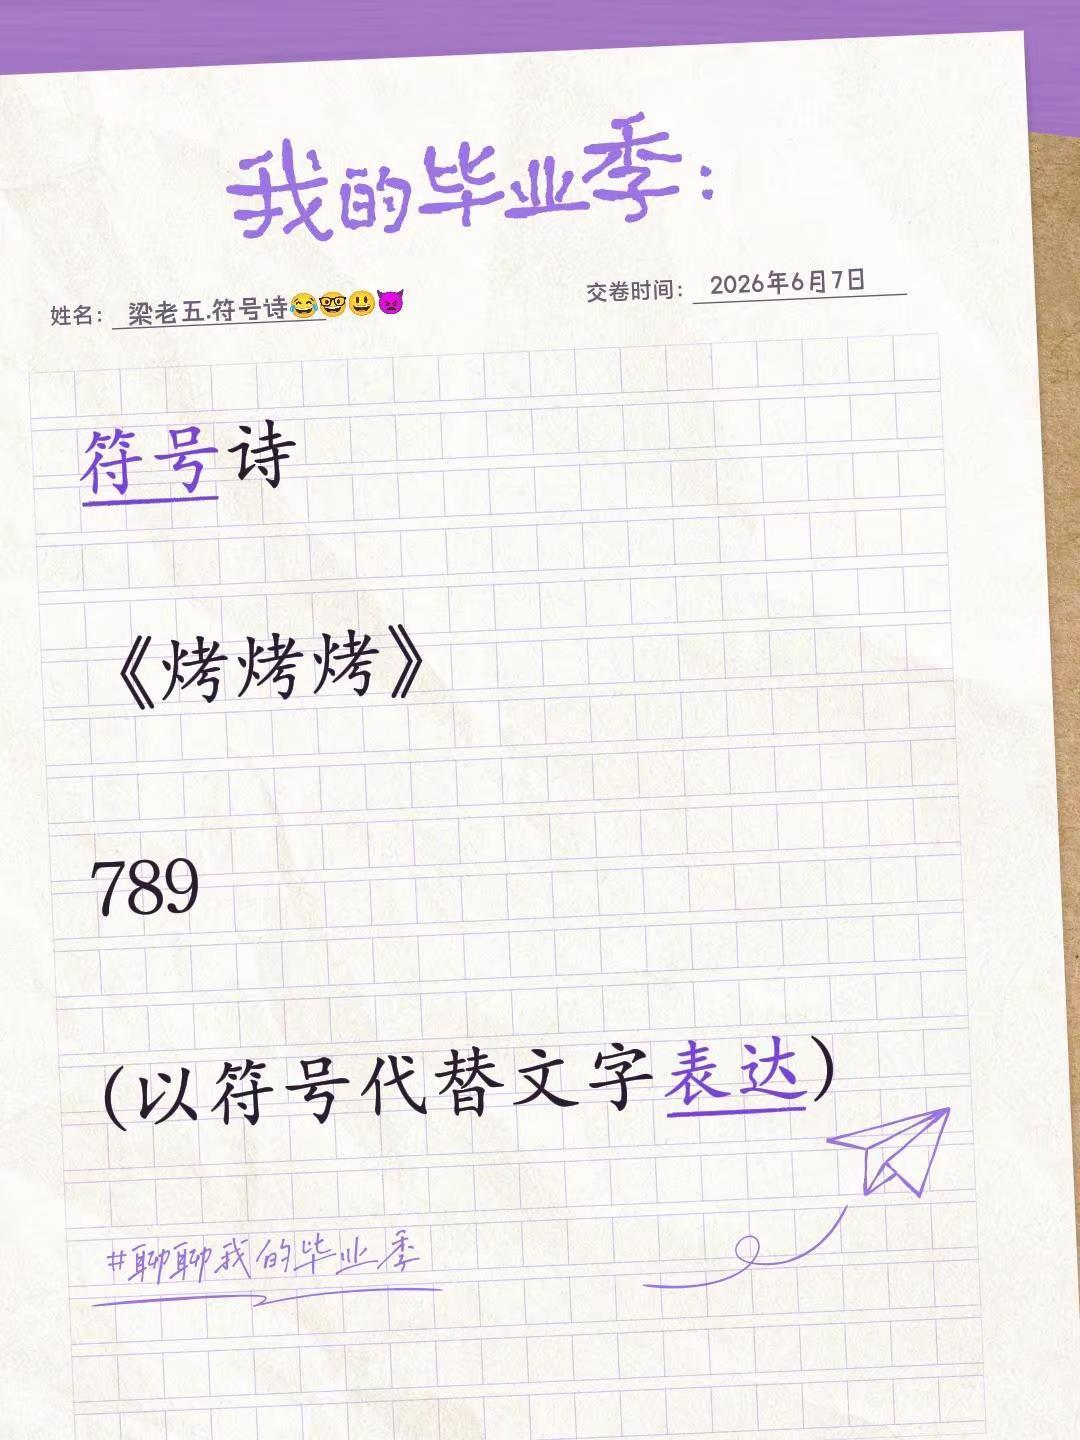 我的毕业季：
姓名： 梁老五.符号诗😂🤓😃👿
交卷时间： 2026年6月7日
符号诗
《烤烤烤》
789
(以符号代替文字表达)
#聊聊我的毕业季